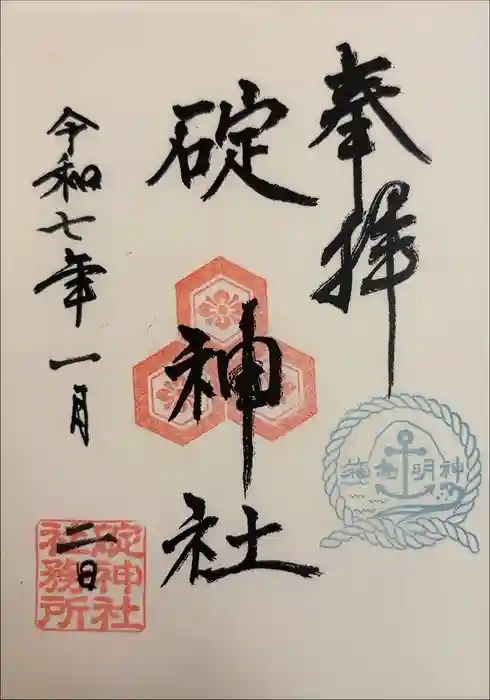 奉拝
碇神社
令和七年一月
二日
碇神社
社務所